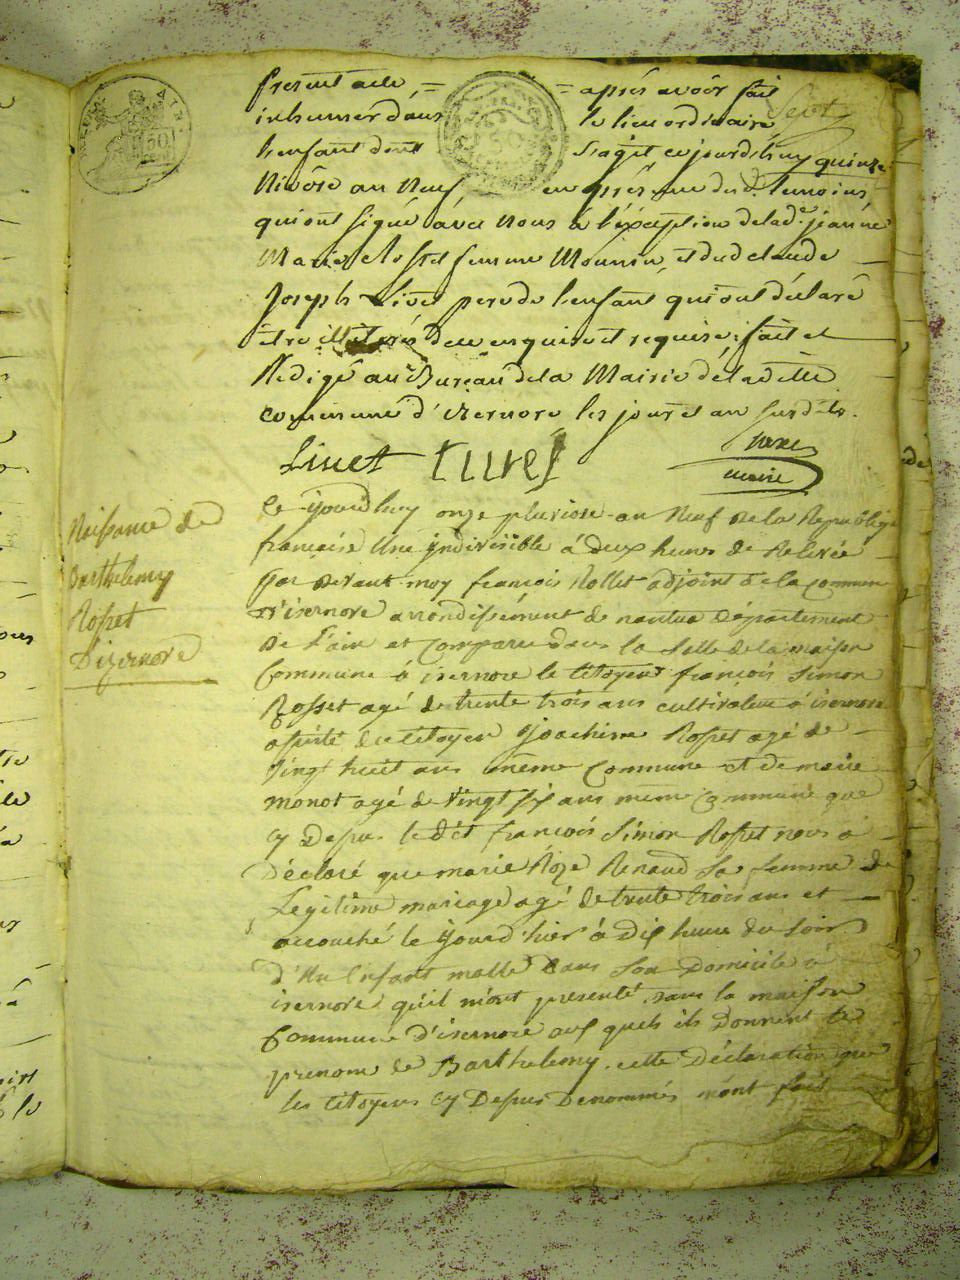 présent acte, = = après avoir fait
inhumer dans le lieu ordinaire
Sept
l'enfant dont s'agit cejourd'huy quinze
Nivôse an Neuf en présence desd. temoins
qui ont signé avec nous à l'exception de lad.e jeanne
Marie femme Mounin, et dud. claude
Joseph Livet pere de l'enfant qui ont déclaré
être illiterés de ce enquis et requise; fait et
Rédigé au Bureau de la Mairie de laditte
commune d'izernore les jour et an susdits.
Livet
maire
Naissance de
Barthelemy
Rosset
D'izernore
Ce jourdhuy onze pluviose an Neuf de la Republique
francaise Une jndivisible à deux heures de Relevée
par devant moy françois Rollet adjoint de la commune
D'isernore arondissement de nantua département
de l'ain et comparu dans la salle de la maison
Commune à isernore le Citoyen françois Simon
Rosset agé de trente trois ans cultivateur à isernore
assisté du citoyen Joachim Rosset agé de
Vingt huit ans même Commune et de marie
monot agé de Vingt six ans même Commune que
cy Depus le dét françois Simon Rosset nous a
Déclaré que marie Roze Renaud sa femme de
Legitime mariage agé de trente trois ans et
accouché le Jourd'hier à dix heure du Soir
d'Un Enfant malle dans Son Domicile à
isernore qu'il m'ont presenté dans la maison
Commune d'isernore auf quels ils Donnent le
prenom de Barthelemy. cette Déclaration que
les Citoyens cy Depus Denommés m'ont fait